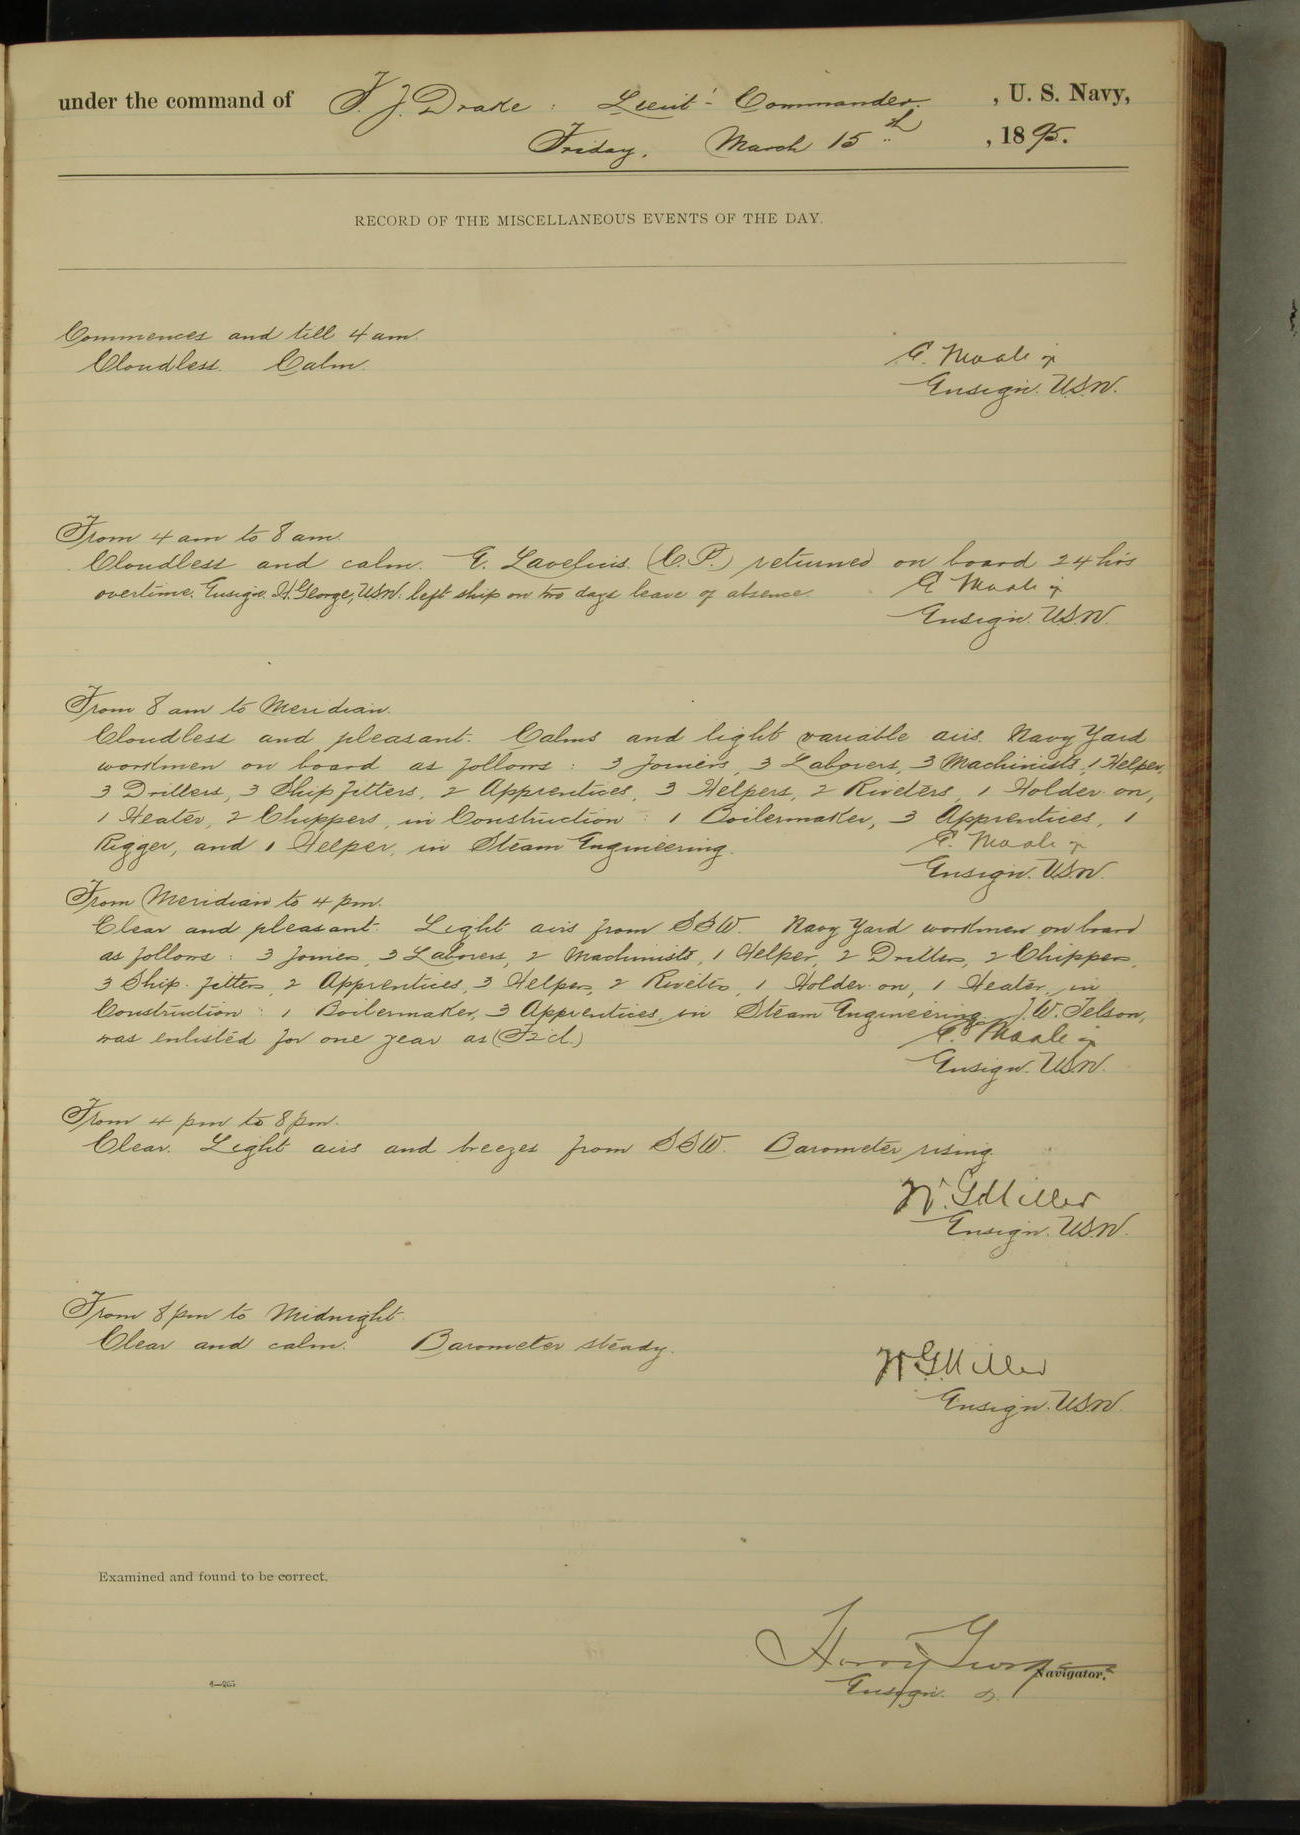 under the command of F. J. Drake : Lieut - Commander. , U. S. Navy,
Friday, March 15th , 1895.
RECORD OF THE MISCELLANEOUS EVENTS OF THE DAY.
Commences and till 4 am.
Cloudless. Calm.
E. Moale jr
Ensign. U.S.N.
From 4 am to 8 am.
Cloudless and calm. G. (C.P.) returned on board 24 hrs
overtime. Ensign H. George, U.S.N. left ship on two days leave of absence.
E Moale jr
Ensign. U.S.N.
From 8 am to Meridian.
Cloudless and pleasant. Calms and light variable airs. Navy Yard
workmen on board as follows : 3 Joiners, 3 Laborers, 3 Machinists, 1 Helper,
3 Drillers, 3 Ship fitters, 2 Apprentices, 3 Helpers, 2 Riveters, 1 Holder on,
1 Heater, 2 Chippers, in Construction : 1 Boilermaker, 3 Apprentices, 1
Rigger, and 1 Helper, in Steam Engineering.
E. Moale jr
Ensign. U.S.N.
From Meridian to 4 pm.
Clear and pleasant. Light airs from SSW. Navy Yard workmen on board
as follows : 3 Joiners, 3 Laborers, 2 Machinists, 1 Helper, 2 Drillers, 2 Chippers,
3 Ship. fitters, 2 Apprentices, 3 Helpers, 2 Riveters, 1 Holder on, 1 Heater, in
Construction : 1 Boilermaker, 3 Apprentices, in Steam Engineering. J. W. Telson,
was enlisted for one year as (F2cl.)
E. Moale jr
Ensign. U.S.N.
From 4 pm to 8 pm.
Clear. Light airs and breezes from SSW. Barometer rising.
W. G. Miller
Ensign. U.S.N.
From 8 pm to Midnight.
Clear and calm. Barometer steady.
W. G. Miller
Ensign. U.S.N.
Examined and found to be correct.
Harry George
Navigator.
Ensign.